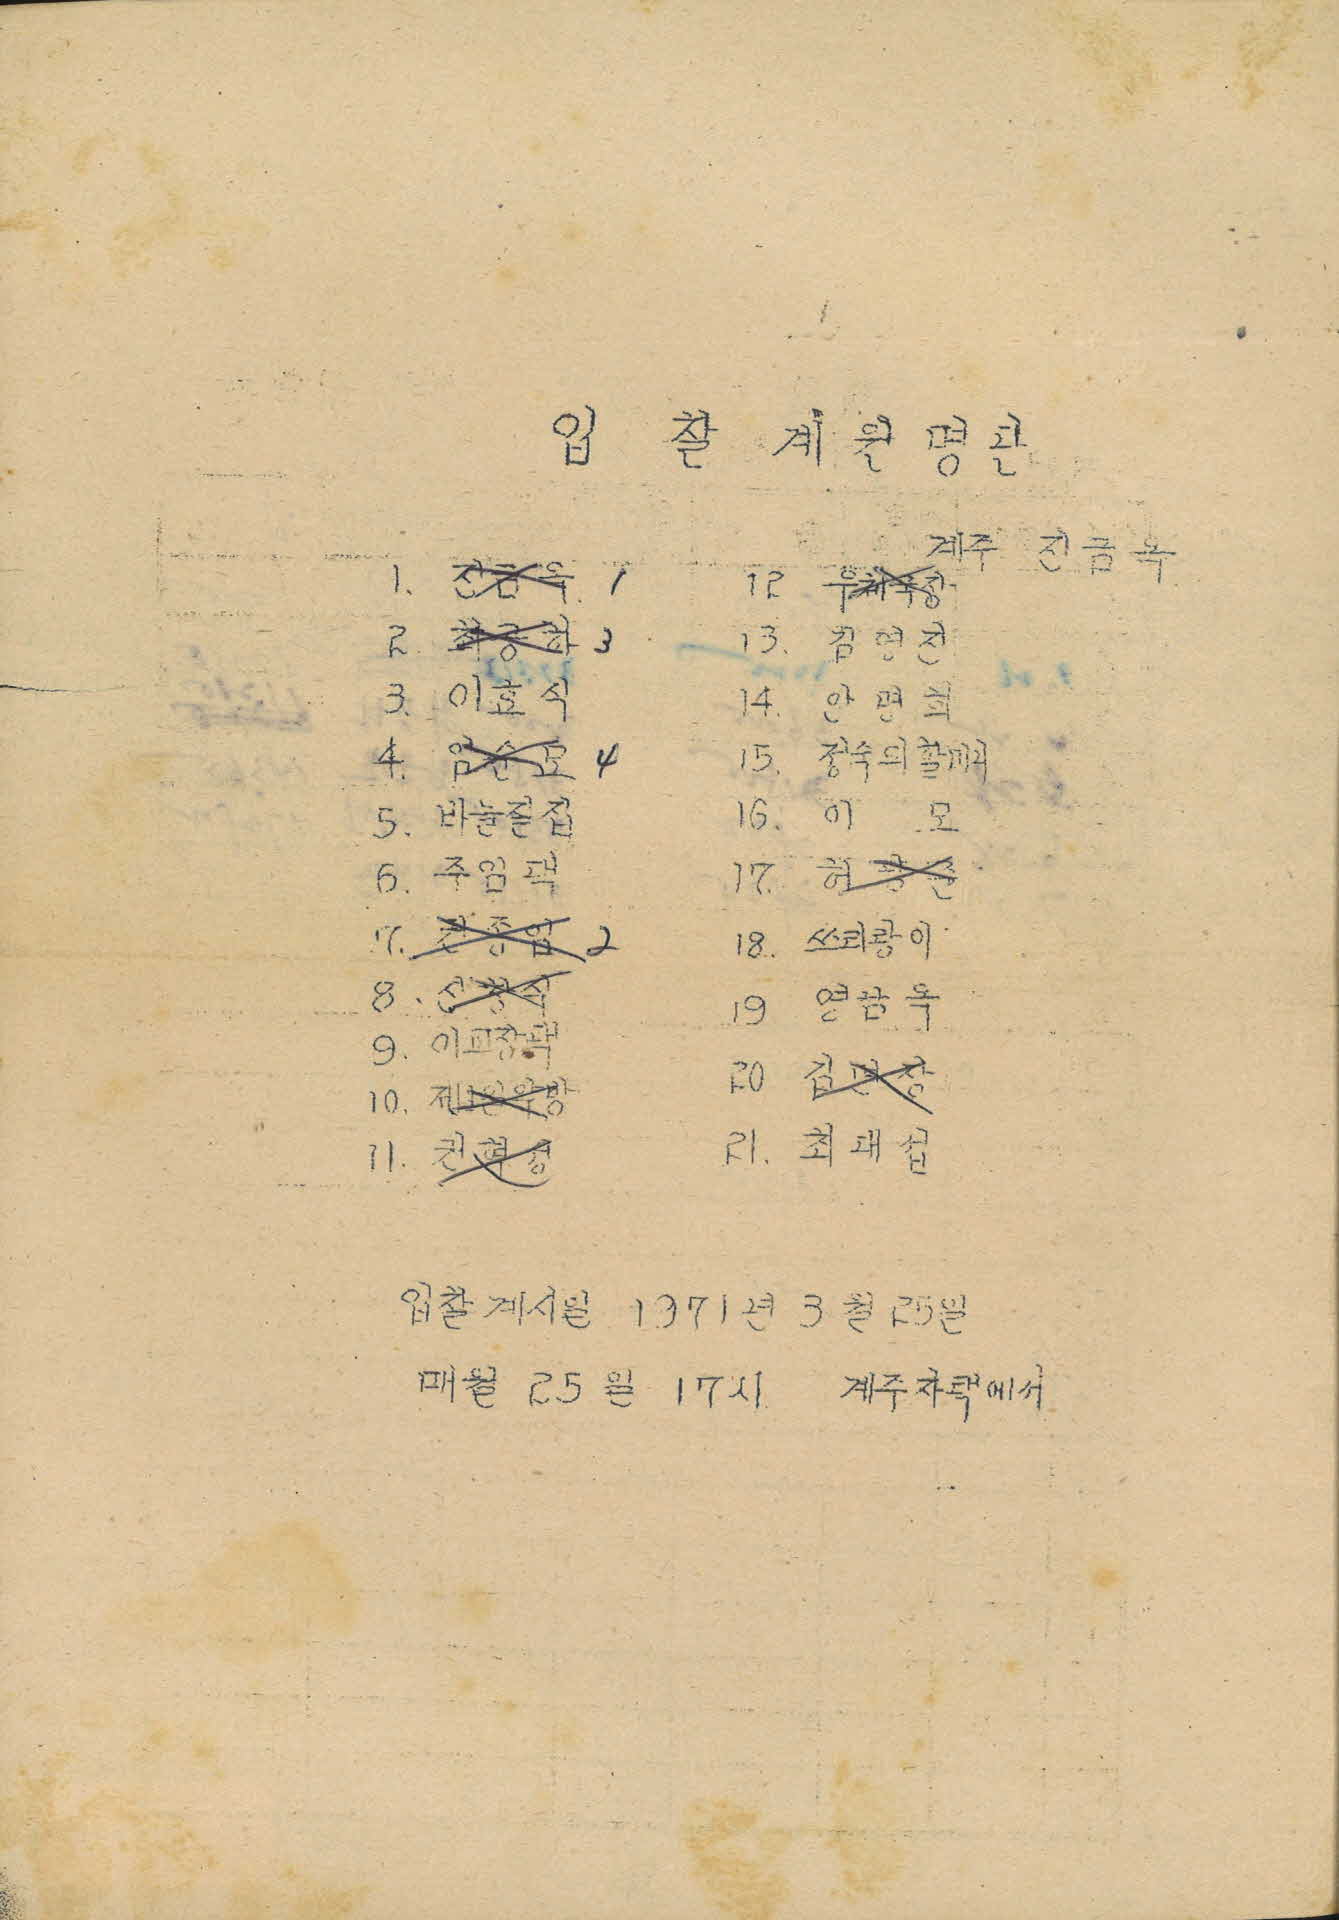 입 찰 계 원 명 단
계주 진금옥
1. 진금옥 1
2. 최
3
3. 이효식
4. 임순모 4
5. 바늘질집
6. 주임댁
7. 전종임 2
8. 신창식
9. 이교장댁
10. 제일약방
11. 전혁성
12 우체국장
13. 김영진
14. 안명희
15. 정숙의할머니
16. 이 모
17. 허
18. 쓰리랑이
19 연금옥
20 김면장
21. 최대섭
입찰계시일 1971년 3월 25일
매월 25일 17시 계주자택에서